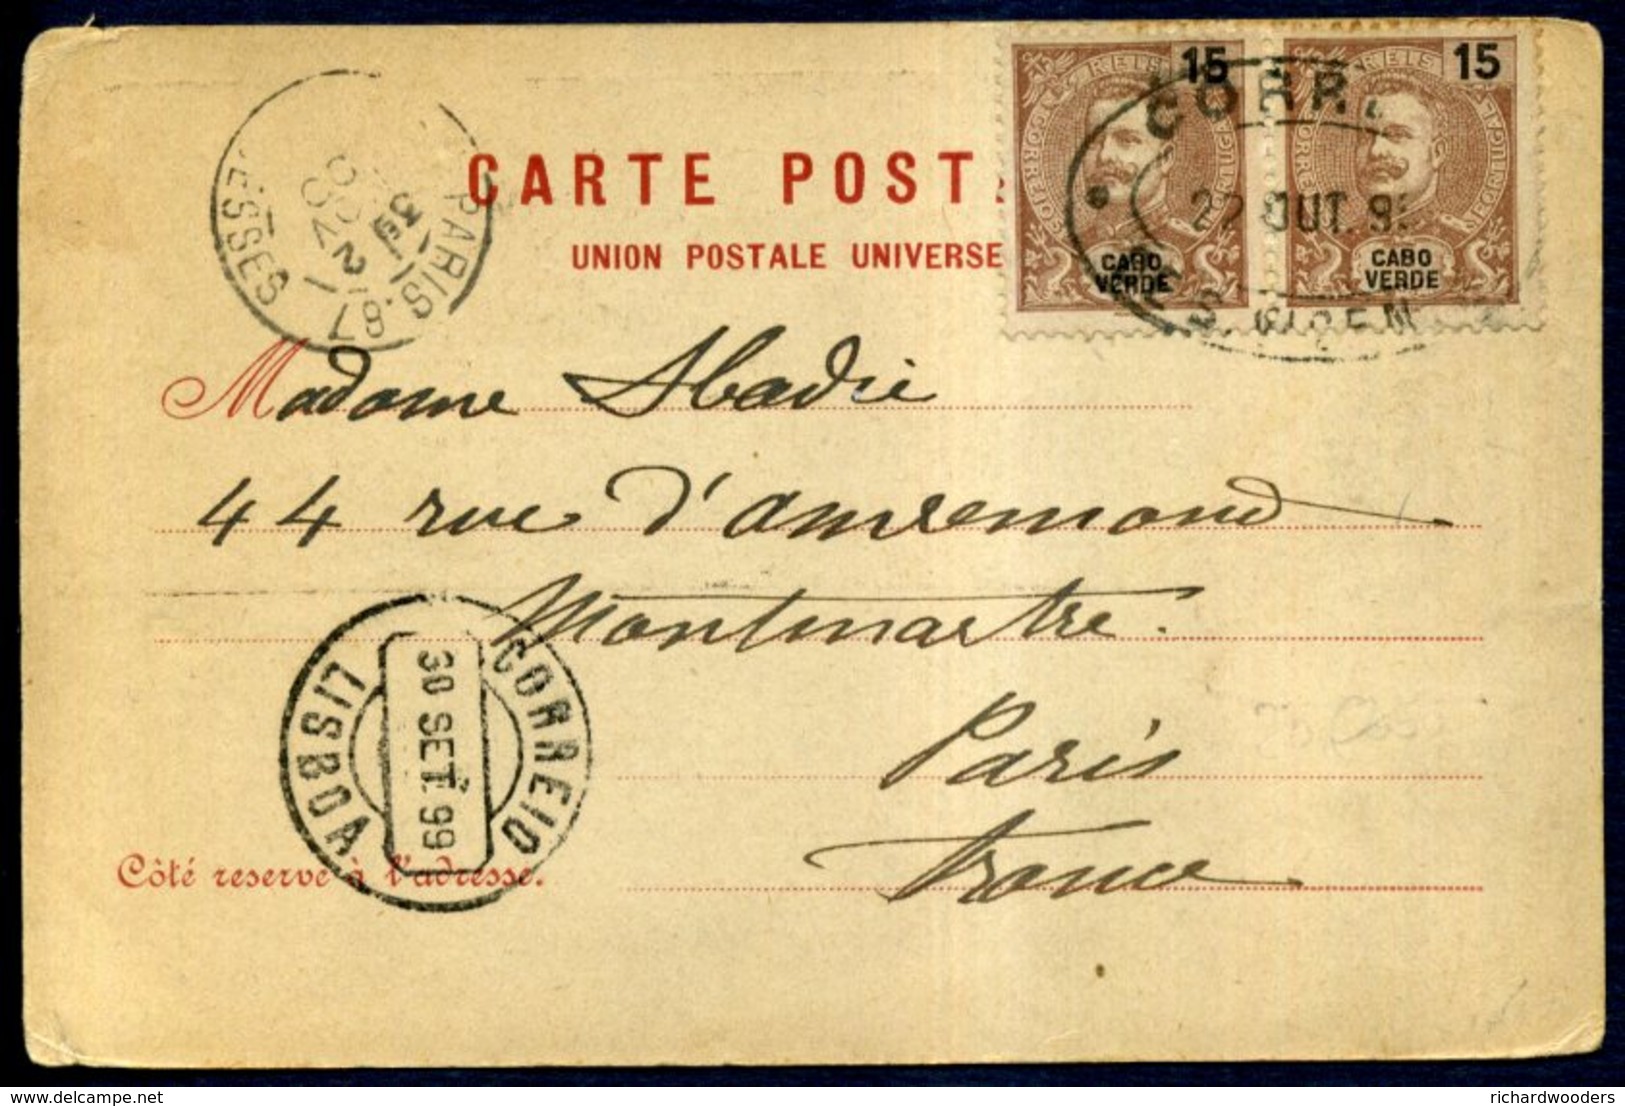 CARTE POST
UNION POSTALE UNIVERSE
15
REIS
CORREIOS
PORTUGAL
CABO
VERDE
15
REIS
CORREIOS
PORTUGAL
CABO
VERDE
CORR
OUT. 9
PARIS
Madame Abadie
44 rue d'amremond
Montmartre.
Paris
France
CORREIO
30 SET. 99
LISBOA
Côté reserve à l'adresse.
www.delcampe.net
richardwooders